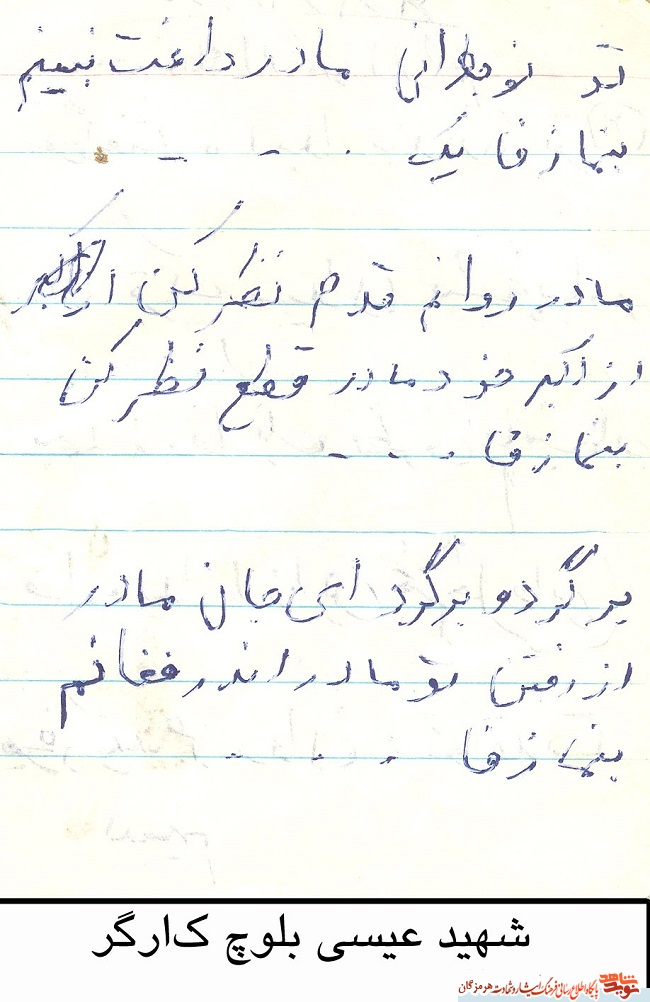 تو نوجوانی مادر داغت نبینم
بنما زفا یک . - -
مادر روانم قدم نظر کن
از اکبر خود مادر قطع نظر کن
بنما زفا . - -
برگرد و برگرد ای جان مادر
از رفتن تو مادر اندر فغانم
بنما زفا . . . -
شهید عیسی بلوچ کارگر
نوید شاهد
پایگاه اطلاع رسانی فرهنگ ایثار و شهادت هرمزگان